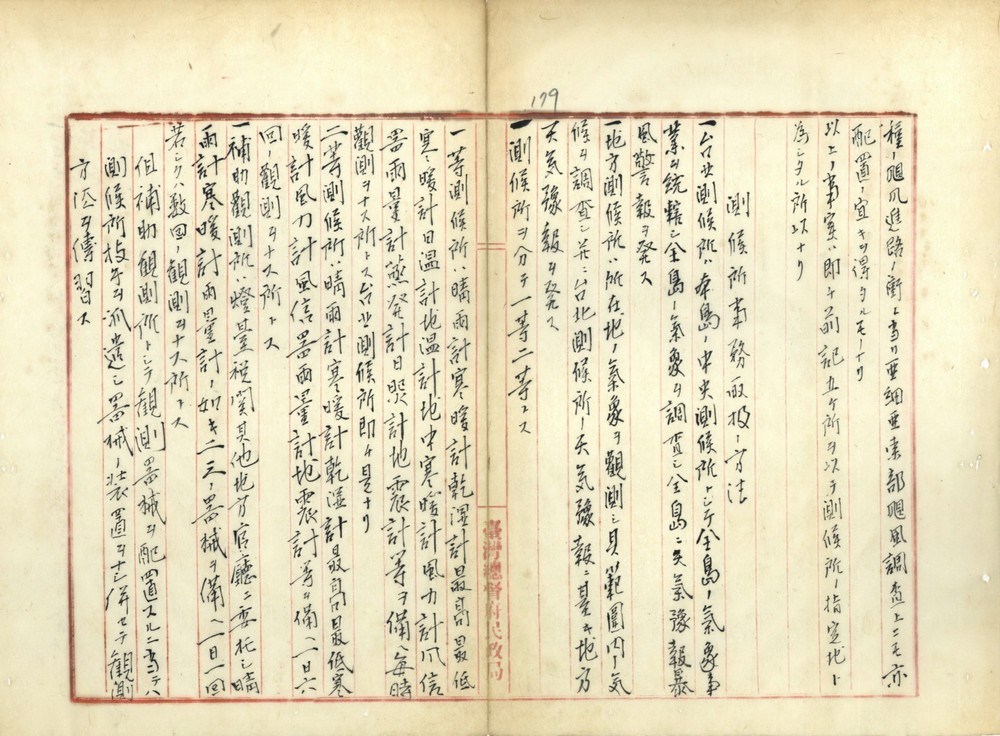 179
種ノ颶風進路ノ衝ニ当リ亜細亜東部颶風調査上ニモ亦
配置ノ宜キヲ得タルモノナリ
以上ノ事実ハ即チ前記五ケ所ヲ以テ測候所ノ指定地ト
為シタル所以ナリ
測候所事務取扱ノ方法
一台北測候所ハ本島ノ中央測候所トシテ全島ノ気象事
業ヲ統轄シ全島ノ気象ヲ調査シ全島ニ天気豫報暴
風警報ヲ発ス
一地方測候所ハ所在地ノ気象ヲ観測シ其範圍内ノ気
候ヲ調査シ並ニ台北測候所ノ天気豫報ニ基キ地方
天気豫報ヲ発ス
一測候所ヲ分テ一等二等トス
一等測候所ハ晴雨計寒暖計乾湿計最高最低
寒暖計日温計地温計地中寒暖計風力計風信
器雨量計蒸発計日照計地震計等ヲ備ヘ毎時
観測ヲナス所トス台北測候所即チ是ナリ
二等測候所ハ晴雨計寒暖計乾湿計最高最低寒
暖計風力計風信器雨量計地震計等ヲ備ヘ一日六
回ノ観測ヲナス所トス
一補助観測所ハ燈臺税関其他地方官廳ニ委托シ晴
雨計寒暖計雨量計ノ如キ二三ノ器械ヲ備ヘ一日一回
若シクハ数回ノ観測ヲナス所トス
但補助観測所トシテ観測器械ヲ配置スルニ当テハ
測候所技手ヲ派遣シ器械ノ装置ヲナシ併セテ観測
方法ヲ傳習ス
臺灣總督府民政局